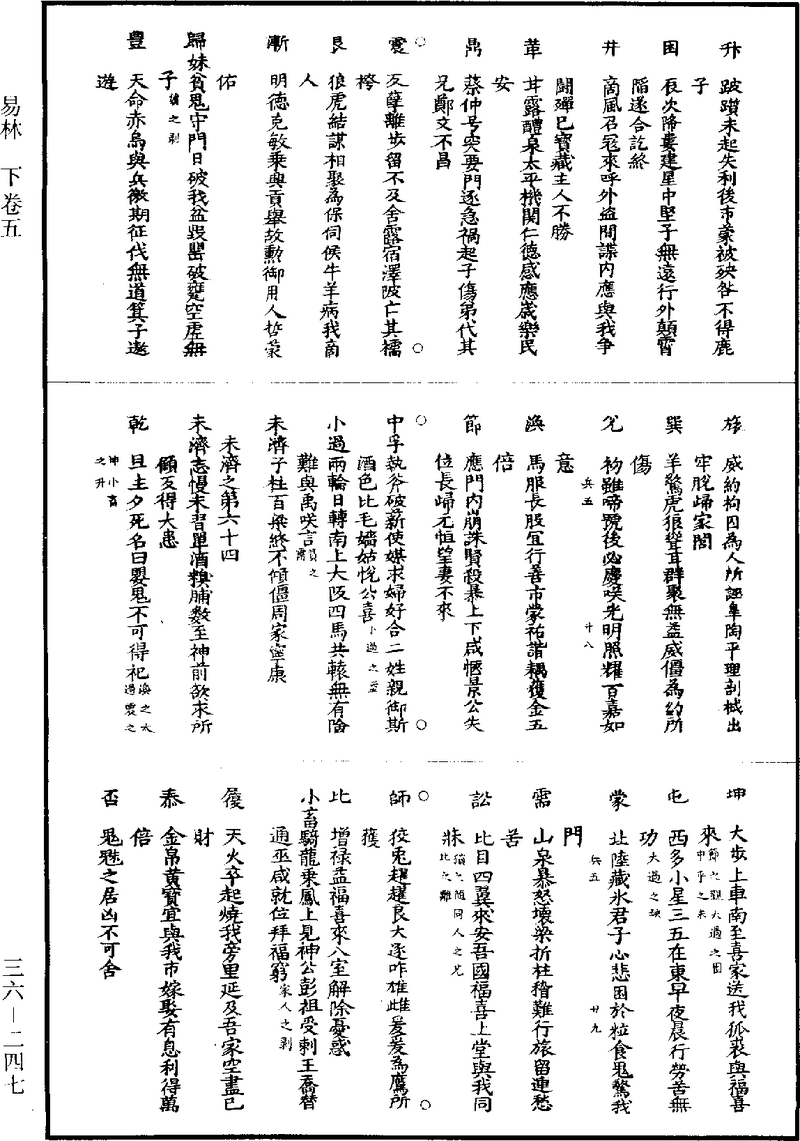 升　跛躓未起失利後市蒙被殃咎不得鹿
子
困　辰次降婁建星中堅子無遠行外顛霄
陷遂合訖終
井　商風召寇來呼外盜間諜内應與我爭
鬬殫巳寶藏主人不勝
革　甘露醴泉太平機關仁德感應歲樂民
安
鼎　蔡仲号突要門逐急禍起子傷弟代其
兄鄭文不昌
震　叐孽離步留不及舍露宿澤陂亡其襦
袴
艮　狼虎結謀相聚為保伺候牛羊病我商
人
漸　明德克敏乘輿貢舉放勲御用人哲蒙
佑
歸妹貧鬼守門日破我盆毀罌破甕空虛無
子
豐　天命赤烏與兵徵期征伐無道箕子遨
遊
旅　威約拘囚為人所誣皐陶平理剖械出
牢脫歸家閭
巽　羊驚虎狼聳耳群聚無益威僵為約所
傷
兌　初雖啼號後必慶咲光明照耀百嘉如
意
兵五　廿八
渙　馬服長股宜行善市蒙祐諧耦獲金五
倍
節　應門内崩誅賢殺暴上下咸悖景公失
位長歸元恒望妻不來
中孚執斧破薪使媒求婦好合二姓親御斯
酒色比毛嬙姑悅公喜小過之益
小過兩輪日轉南上大阪四馬共轅無有險
難與禹咲言
未濟子柱百梁終不傾僵周家寧康
未濟之第六十四
未濟志慢未習單酒糗脯數至神前欲求所
願反得大患
乾　旦主夕死名曰嬰鬼不可得祀渙之大過震之
坤小畜之升
坤　大步上車南至喜家送我狐裘與福喜
來節之觀大過之困中孚之未
屯　西多小星三五在東早夜晨行勞苦無
功大過之夬
蒙　北陸藏氷君子心悲困於粒食鬼驚我
門
兵五　廿九
需　山泉暴怒壞梁折柱稽難行旅留連愁
苦
訟　比目四翼來安吾國福喜上堂與我同
牀同人之兌比之離
師　狡兎趯趯良犬逐咋雄雌爰爰為鷹所
獲
比　增祿益福喜來入室解除憂惑
小畜騎龍乘鳳上見神公彭祖受剌王喬贊
通巫咸就位拜福窮家人之剥
履　天火卒起燒我旁里延及吾家空盡已
財
泰　金帛黄寶宜與我市嫁娶有息利得萬
倍
否　鬼魅之居凶不可舍
易林　下卷五
三六—二四七